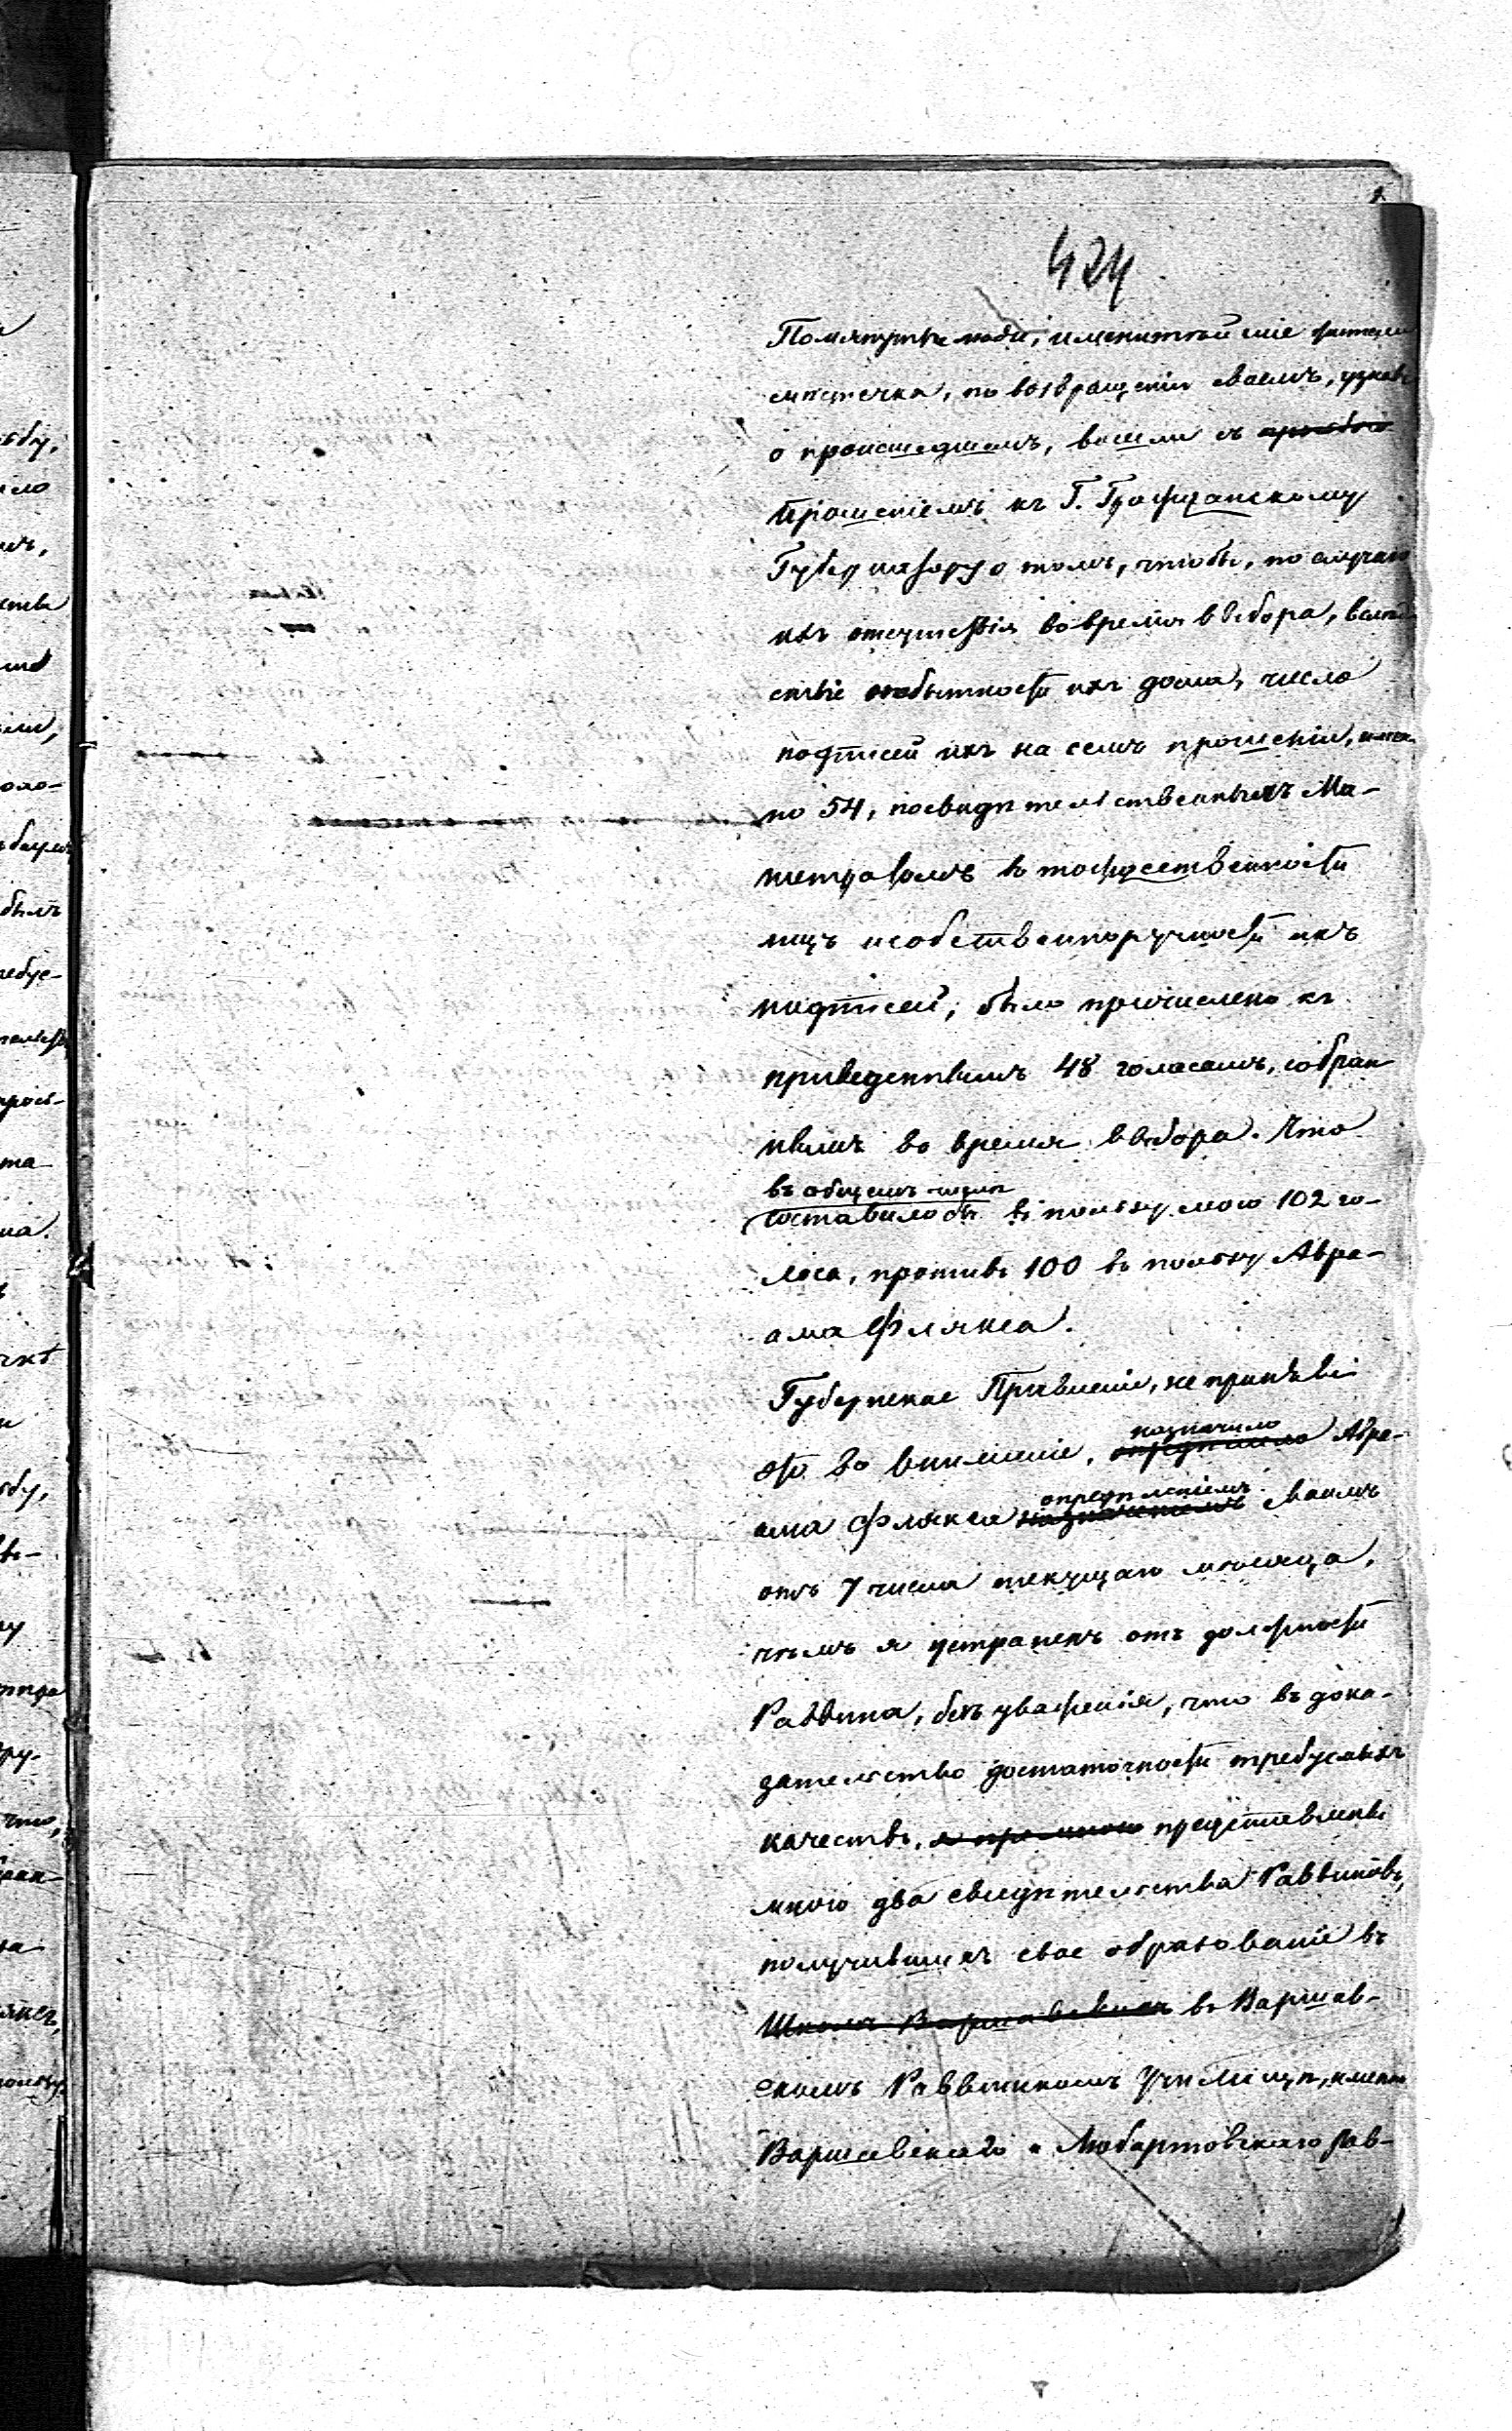 424
Помянутые люди, именитѣйшіе жители
мѣстечка, по возвращеніи своемъ, узнавъ
о происшедшемъ, вошли съ просьбою
прошеніемъ къ Г. Гражданскому
Губернатору о томъ, чтобы, по случаю
ихъ отсутствія во время выбора, вслѣд
ствіе небытности ихъ дома, число
подписей ихъ на семъ прошеніи, имен-
но 54, посвидѣтельствованныхъ Ма-
гистратомъ въ тождественности
лицъ и собственноручности ихъ
подписей, было причислено къ
приведеннымъ 48 голосамъ, собран
нымъ во время выбора. Что
въ общемъ числѣ
составило бы въ пользу мою 102 го-
лоса, противъ 100 въ пользу Авра-
ама Флякса.
Губернское Правленіе, не принявъ
это во вниманіе, опредѣлило назначило Авра-
ама Флякса назначеніемъ опредѣленіемъ своимъ
отъ 7 числа текущаго мѣсяца,
чѣмъ я устраненъ отъ должности
Раввина, безъ уваженія, что въ дока-
зательство достаточности требуемыхъ
качествъ, представлены
мною два свидѣтельства Раввиновъ,
получившихъ свое образованіе въ
Школѣ Варшавской въ Варшав-
скомъ Раввинскомъ Училищѣ, именно
Варшавскаго и Любартовскаго Рав-